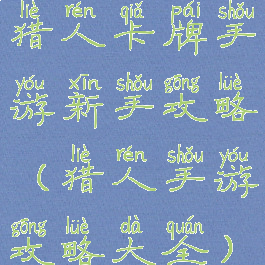 liè rén qiǎ pái shǒu
猎人卡牌手
yóu xīn shǒu gōng lüè
游新手攻略
liè rén shǒu yóu
(猎人手游
gōng lüè dà quán
攻略大全)